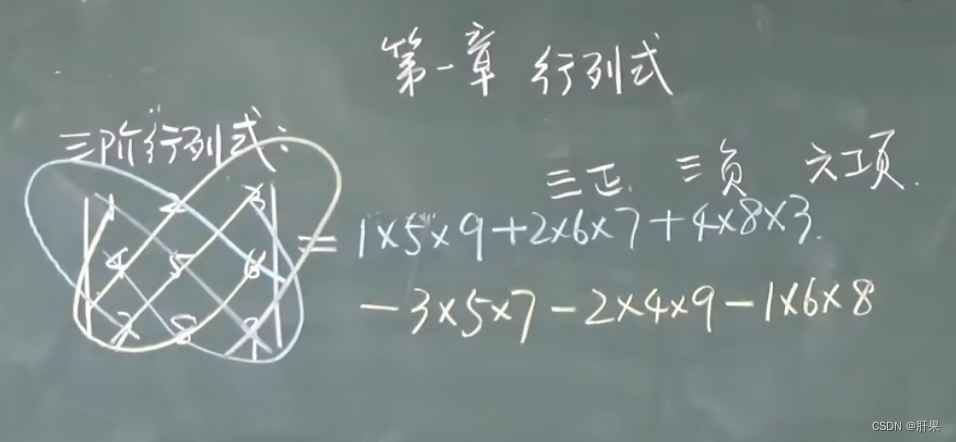 第一章 行列式
三阶行列式:
三正 三负 六项.
1 2 3
4 5 6
7 8 9
= 1×5×9+2×6×7+4×8×3.
-3×5×7-2×4×9-1×6×8
CSDN @肝果